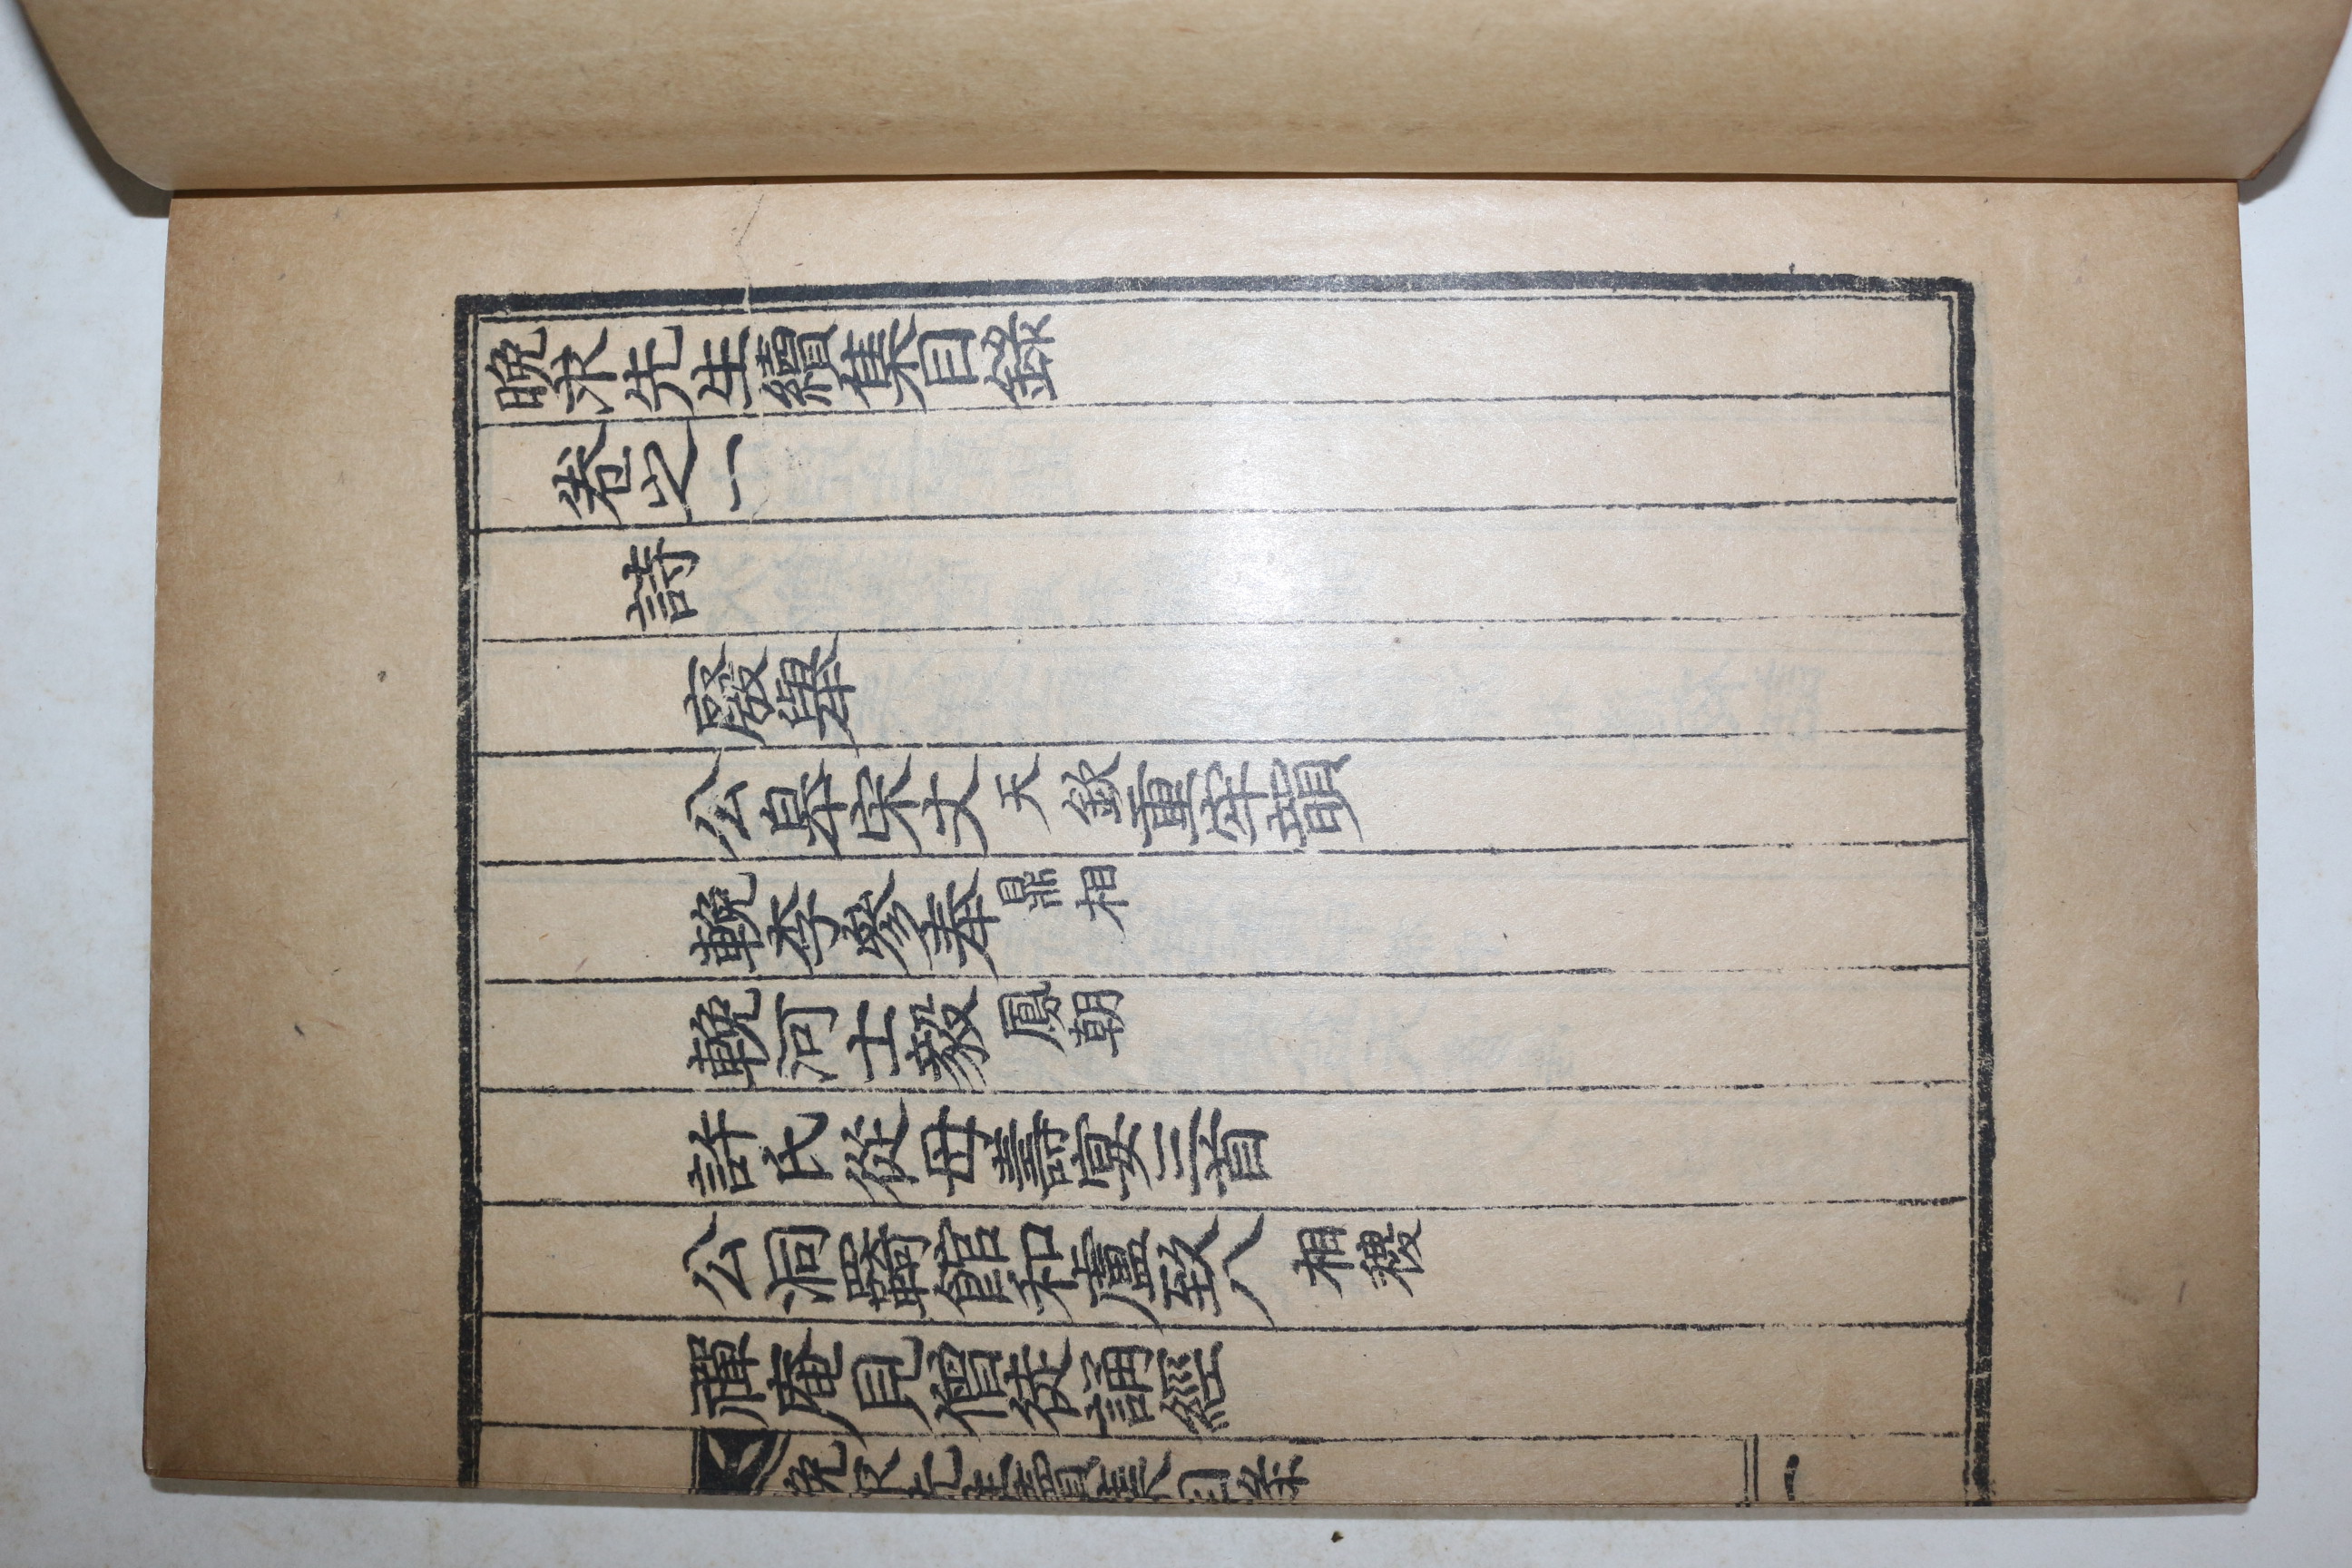 晩求先生續集目錄
卷之一
詩
廢舉
公皐宋丈天欽重牢韻
輓李參奉鼎相
輓河士毅鳳朝
許氏從母壽宴三首
公洞羇館和盧致八相稷
禪庵見僧徒誦經
晩求先生續集目錄 一